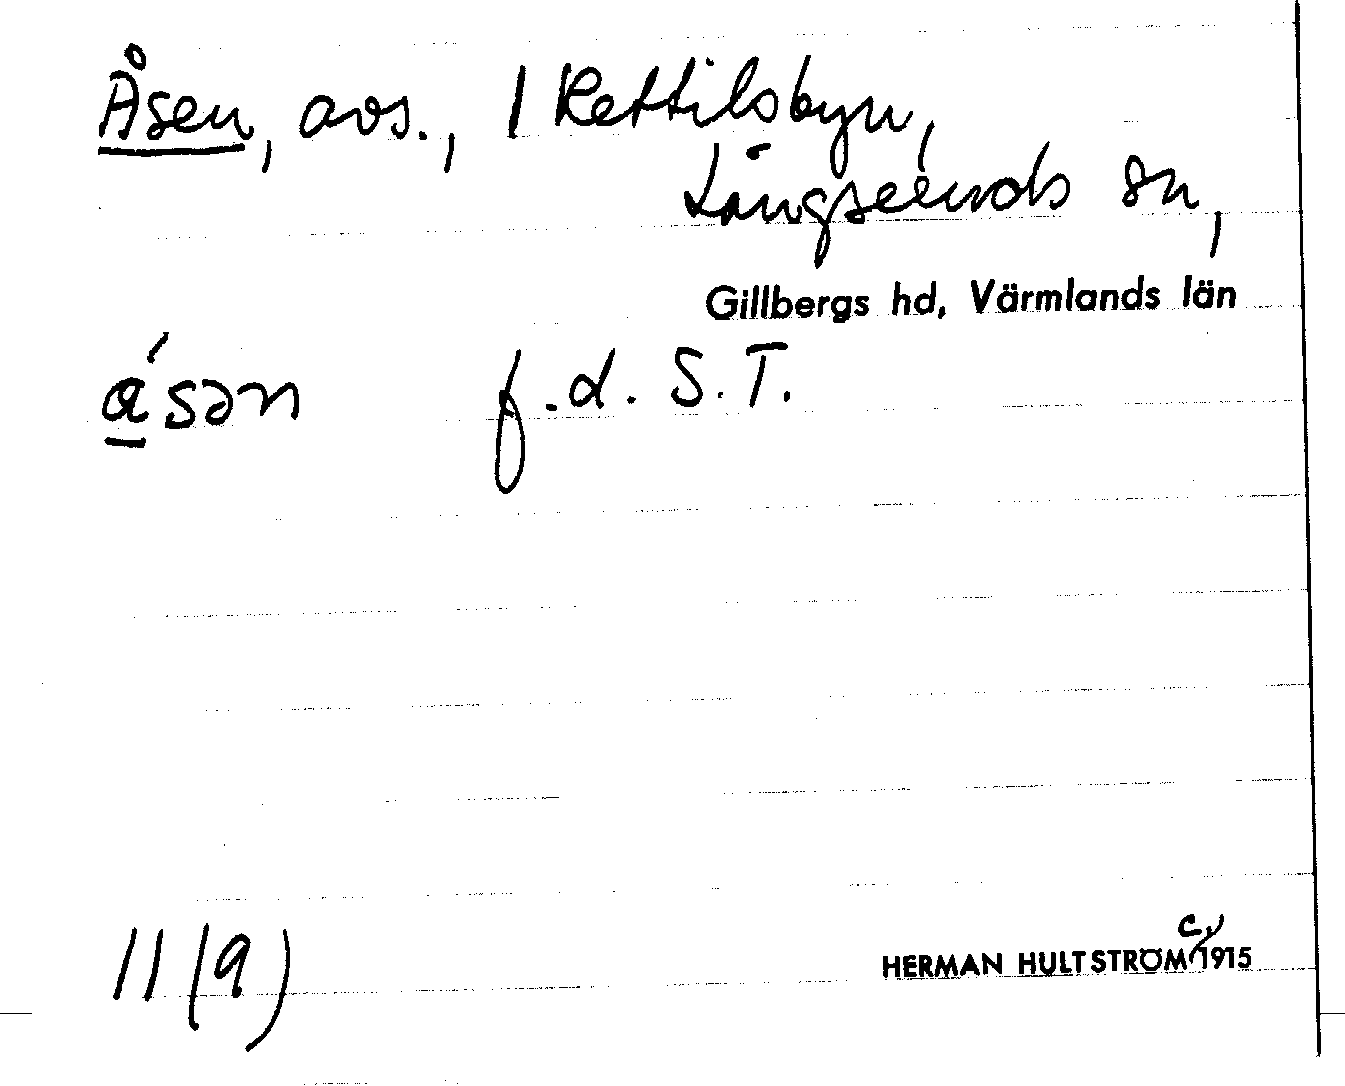 Åsen, avs., 1 Rettilsbyn,
Långseruds sn,
Gillbergs hd, Värmlands län
a̲´sən f.d. S.T.
11(9)
HERMAN HULTSTRÖM c. 1915